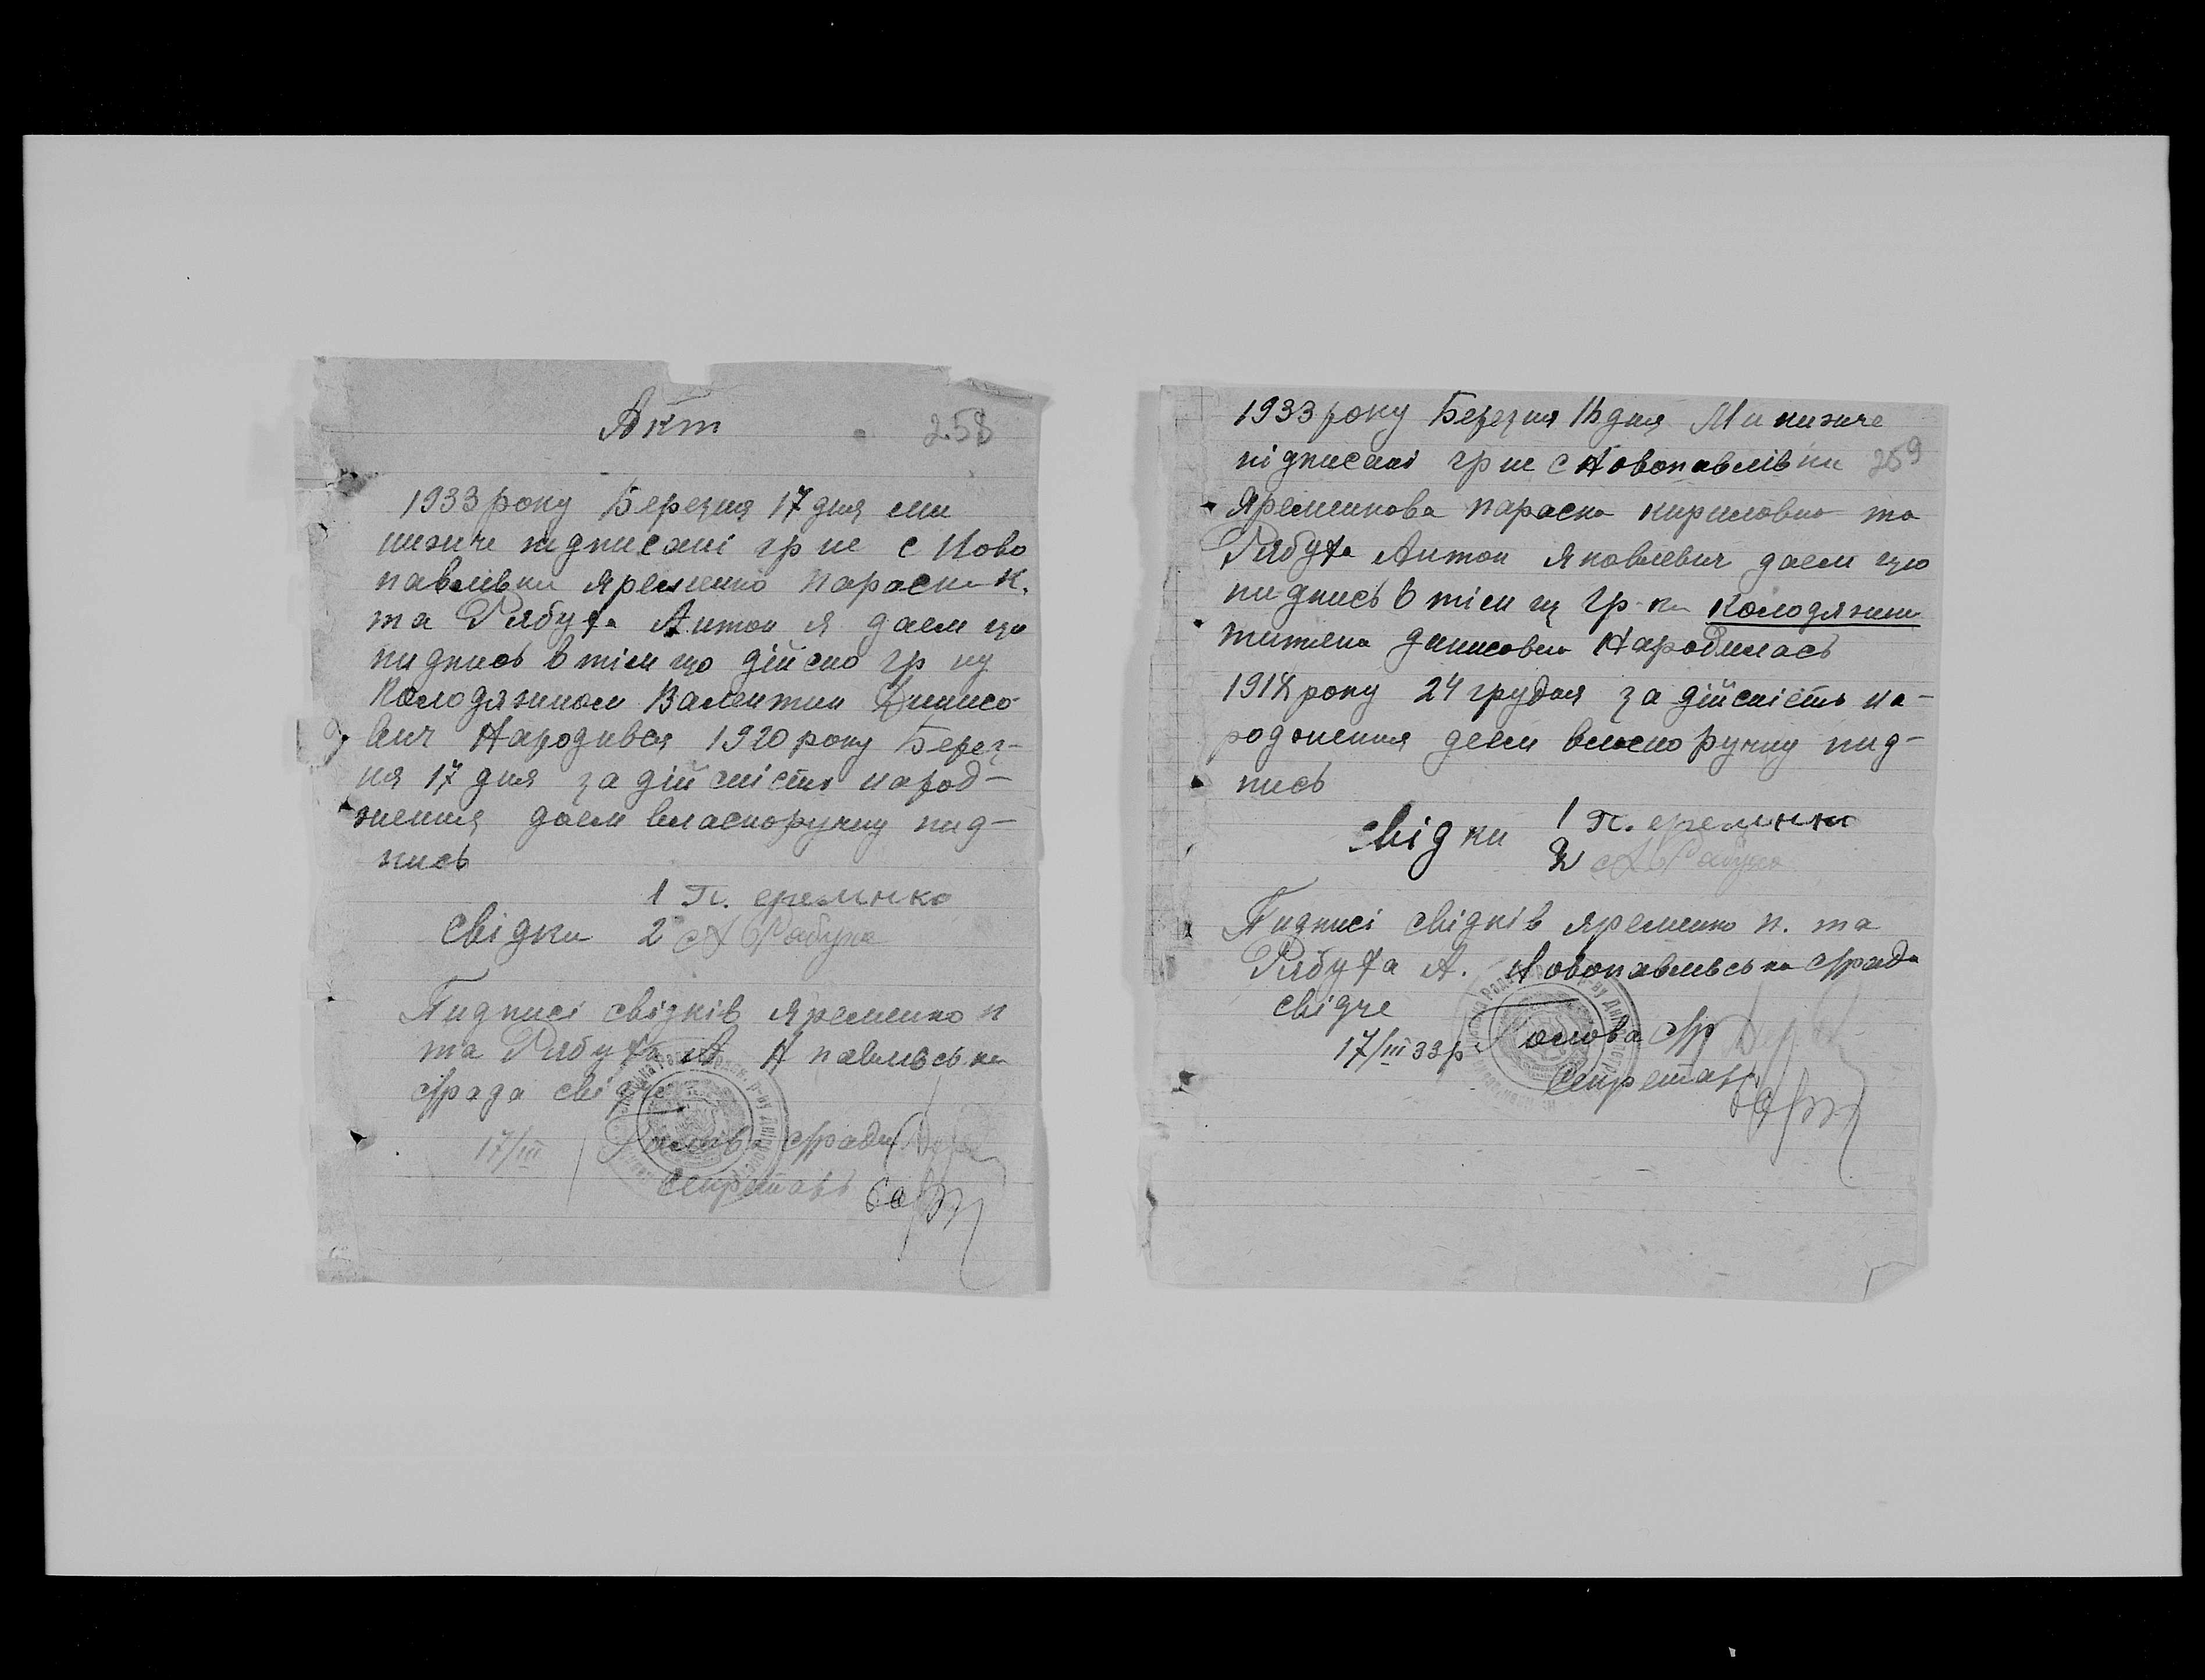 Акт
258
1933 року Березня 17 дня ми
низче підписані гр не с Ново
павлівки Яременко Параска К.
та Рябуха Антон Я даем цю
пидпись в тім що дійсно гр ну
Колодяжном Валентин Динисо
вич Народився 1920 року Берез-
ня 17 дня за дійсність народ-
ження даем власноручну пид-
пись
1 П. еремнко
Свідки 2 А Рабуха
Пидписі свідків Яременко п
та Рябуха А Н павлівська
с/рада свідче
17/III Голова с/ради
Секретарь
1933 року Березня 17 дня Ми низче
підписані гр не с Новопавлівки 259
Яременкова Параска кириловна та
Рябуха Антон Яковлевич даем цю
пидпись в тім що гр-ка Колодяжна
титяна динисовна Народилась
1918 року 24 грудня за дійсність на-
родження деем власноручну пид-
пись
Свідки 1 П. еремнко
2 А Рабуха
Пидписі свідків Яременко п. та
Рябуха А. Новопавлівська с/рада
свідче
17/III 33 р Голова с/р
Секретарь